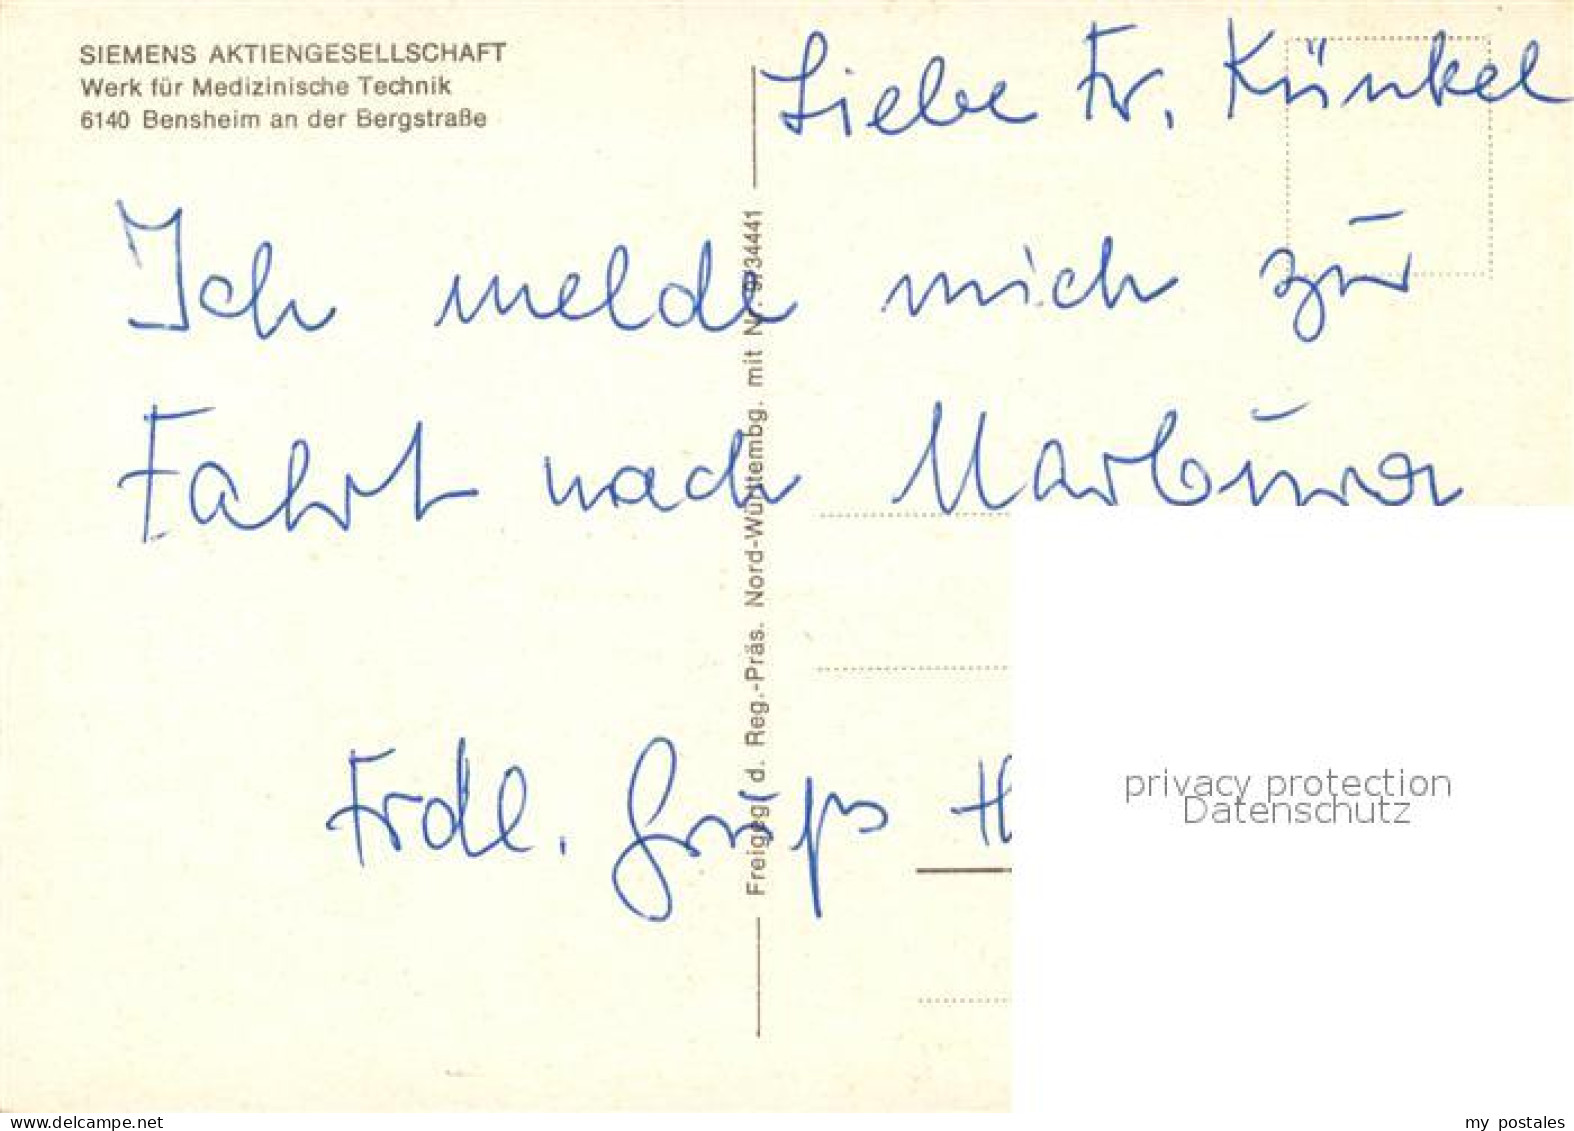 SIEMENS AKTIENGESELLSCHAFT
Werk für Medizinische Technik
6140 Bensheim an der Bergstraße
Liebe Fr. Künkel
Ich melde mich zur
Fahrt nach Marburg
Frdl. H
Freigeg. d. Reg.-Präs. Nord-Württembg. mit Nr. 9/34441
privacy protection
Datenschutz
www.delcampe.net
my postales